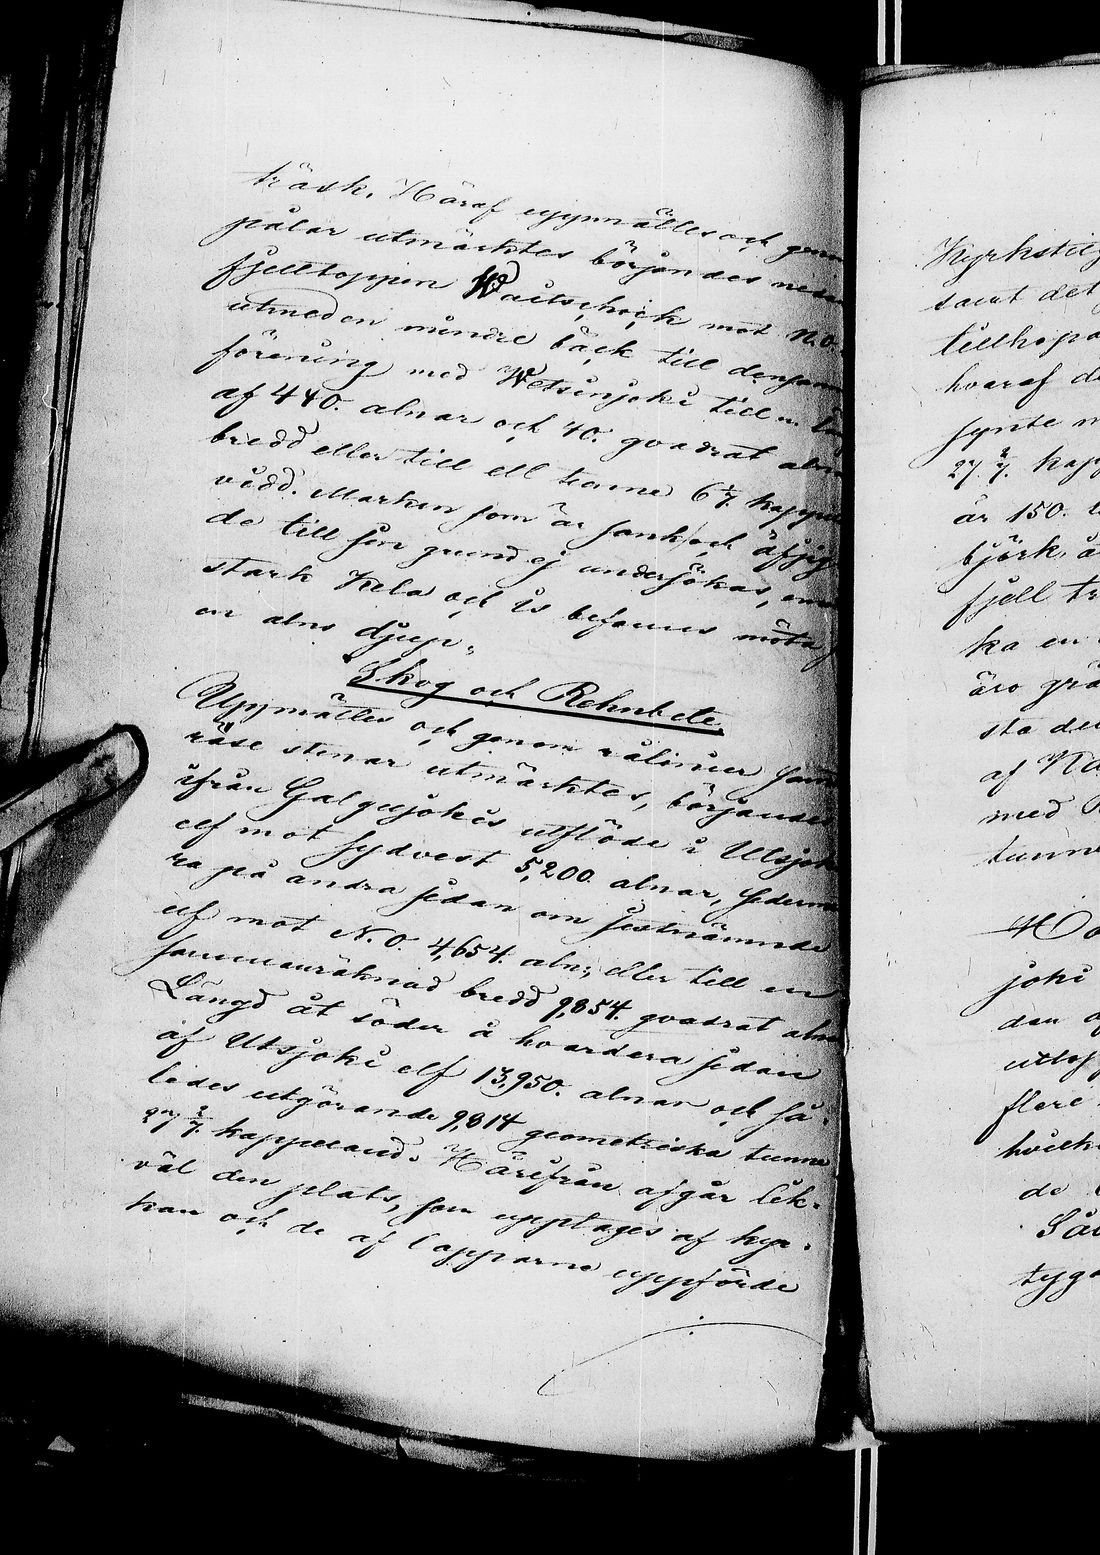 träsk. Häraf uppmältes och genom
pålar utmärktes börjandes nedan
fjelltoppen Waitschoik mot N.O.
utmed en mindre bäck till densam
förening med Wetsinjoki till en
af 440. alnar och 40. qvadrat alnar
bredd eller till ett tunne 6 4/7. kappe
vidd. Marken som är sank och
de till sin grund ej undersökas, em
stark Kela och is befanns möta
en alns djup.
Skog och Rehnbete.
Uppmältes och genom rålinier samt
råse stenar utmärktes, börjandes
ifrån Galgujokis utflöde i Utsjoki
elf mot sydvest 5,200. alnar, sederme
ra på andra sidan om sistnämnde
elf mot N.O. 4,654. aln; eller till en
sammanräknad bredd 9,854. qvadrat alnar
Längd åt söder å hvardera sidan
af Utsjoki elf 13,950. alnar och så
ledes utgörande 9,814 geometriska tunne
27 2/7. kappeland. Härifrån afgår lik-
väl den plats, som upptages af kyr-
kan och de af lapparne uppförde
Kyrkstug
samt det
tillhopa
hvaraf de
synte m
27 2/7. kapp
är 150.
björk, å
fjell tr
ka en
äro grä
sta de
af Na
med
tunne
joki
den af
utlof
flere
hvilk
de
Så
tyg